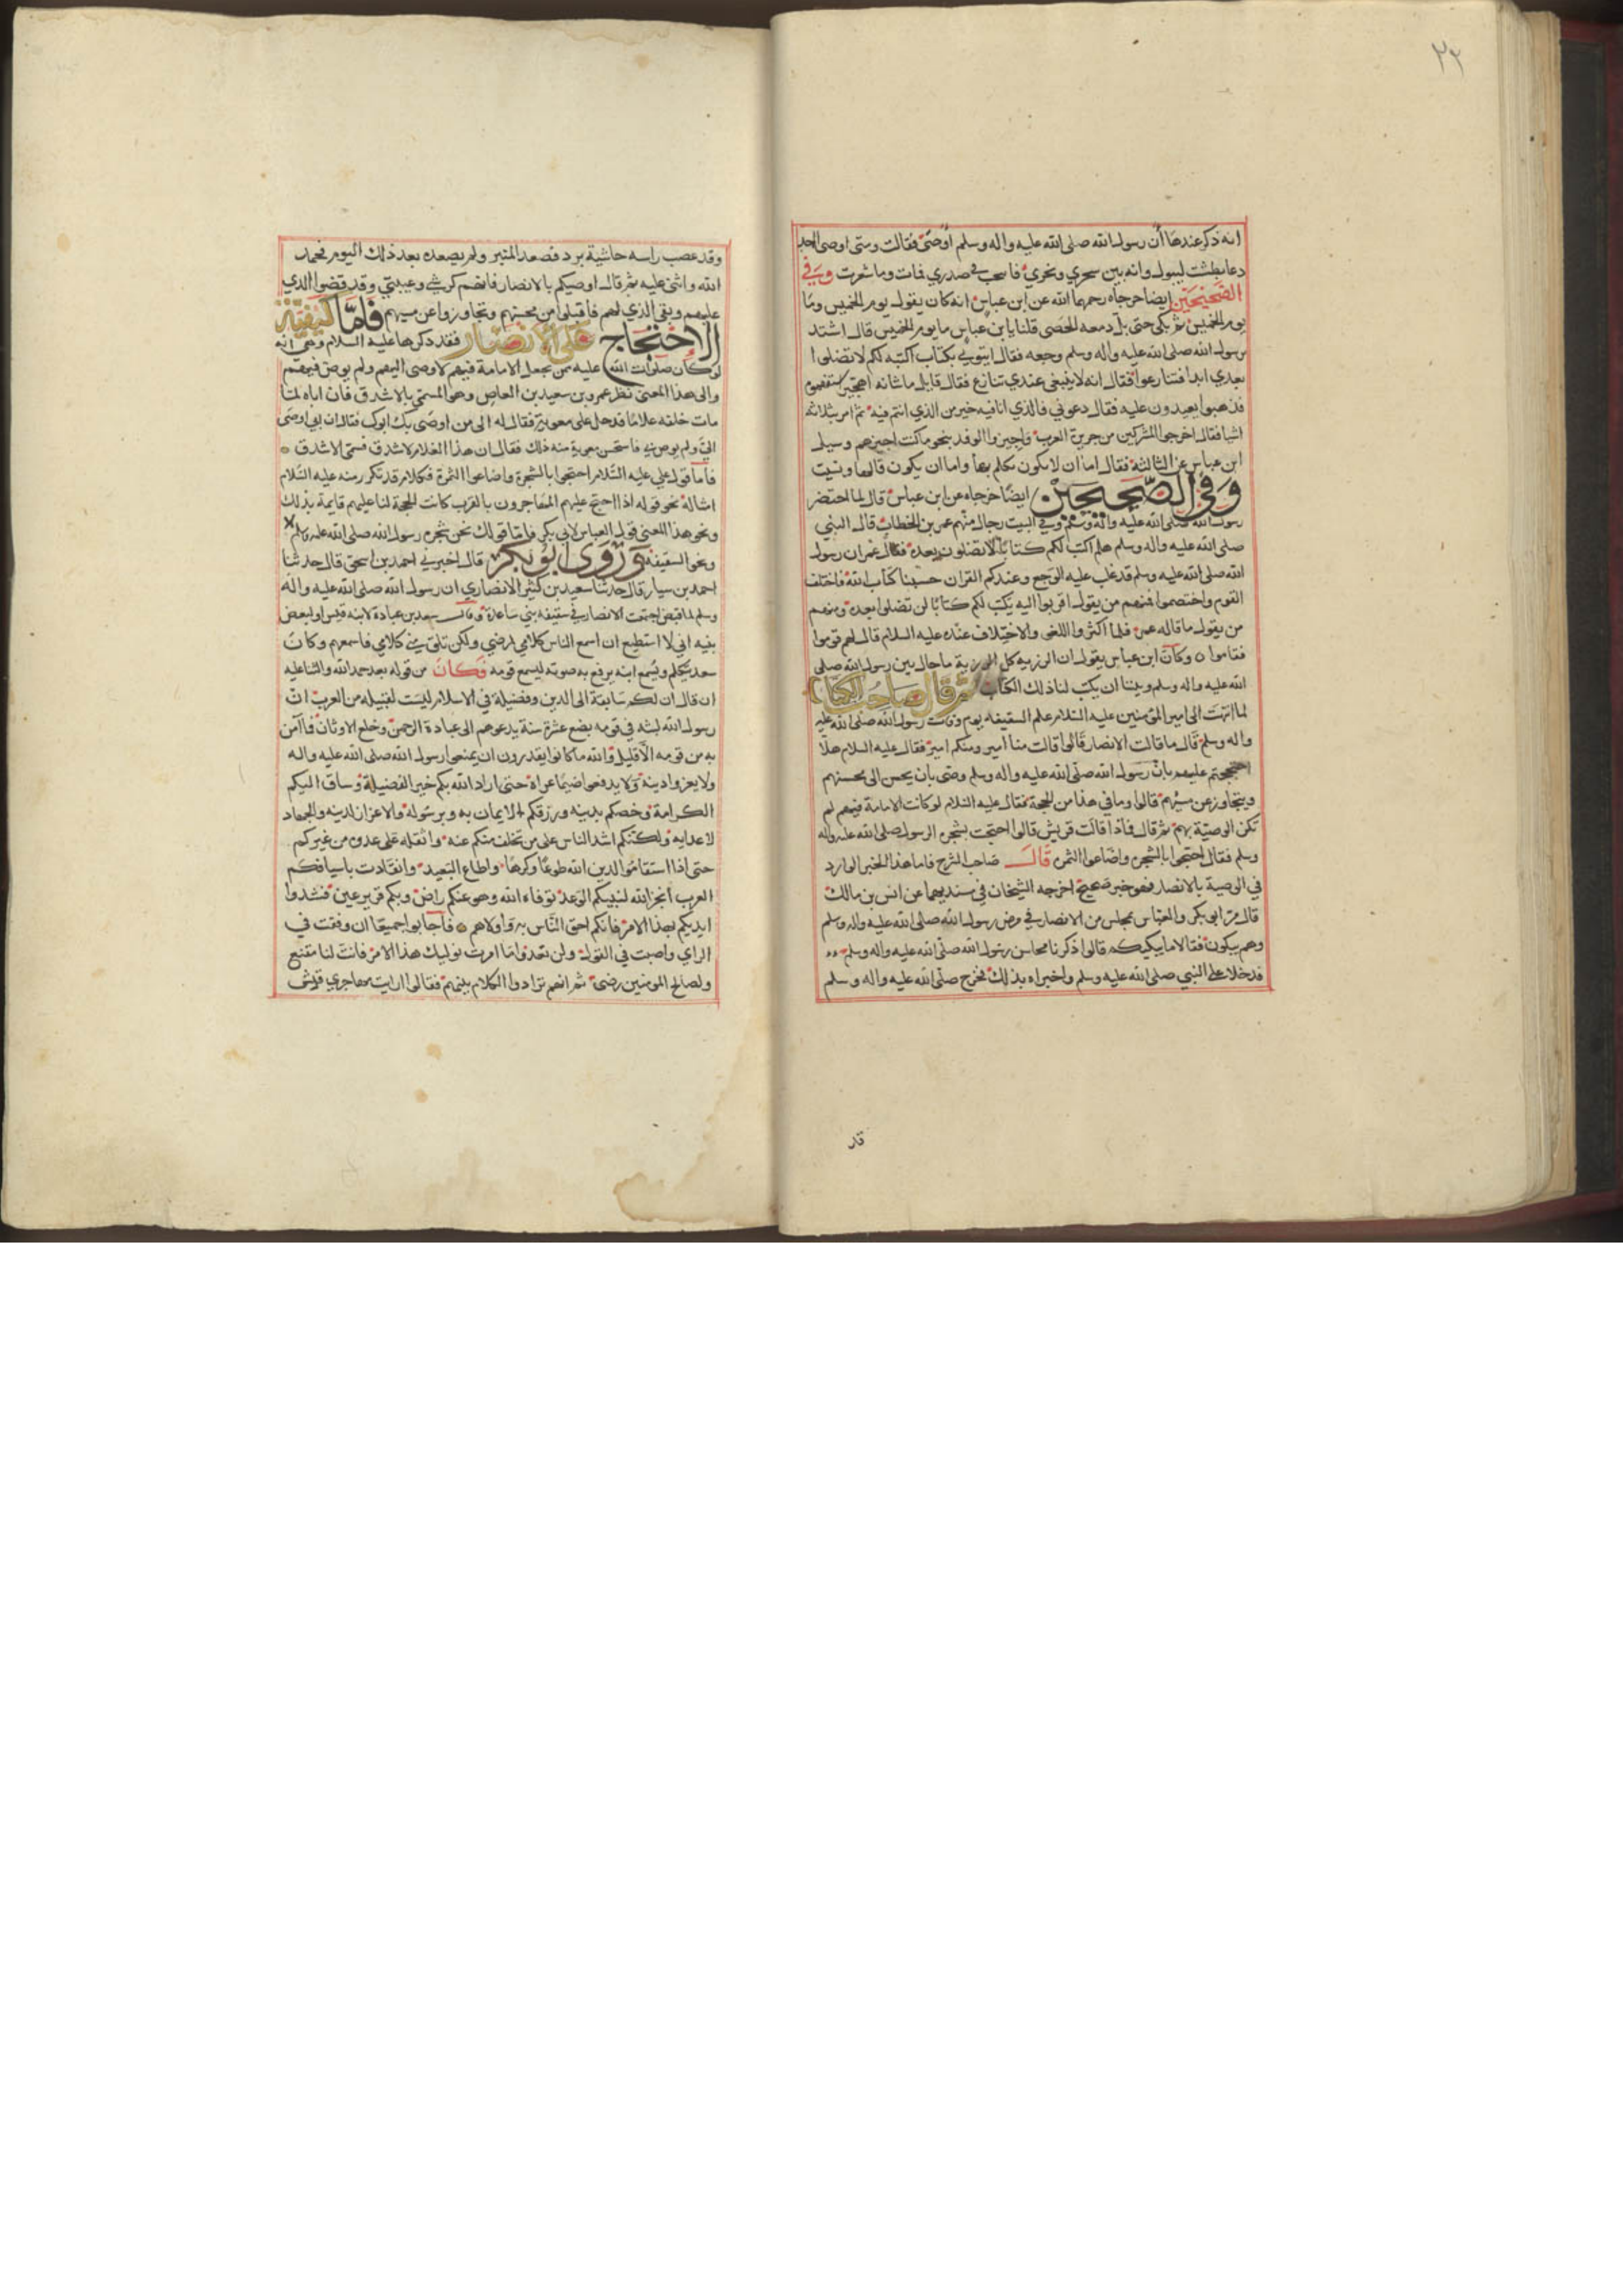 ٢٣
انه ذكر عندها أن رسول الله صلى الله عليه واله وسلم أوصى فقالت ومتى اوصى
دعا بطشت ليبول وانه بين سحري ونحري فانخنث في صدري فمات وما شعرت وفي
الصحيحين ايضا خرجاه رحمهما الله عن ابن عباس انه كان يقول يوم الخميس وما
يوم الخميس ثم بكى حتى بل دمعه الحصى قلنا يا ابن عباس ما يوم الخميس قال اشتد
برسول الله صلى الله عليه واله وسلم وجعه فقال ايتوني بكتاب اكتبه لكم لا تضلوا
بعدي ابدا فتنازعوا فقال انه لا ينبغي عندي تنازع فقال قايل ما شانه اهجر استفهموه
فذهبوا يعيدون عليه فقال دعوني فالذي انا فيه خير من الذي انتم فيه ثم امر بثلاثة
اشيا فقال اخرجوا المشركين من جزيرة العرب واجيزوا الوفد بنحو ما كنت اجيزهم وسيل
ابن عباس عن الثالثة فقال اما ان لا يكون تكلم بها واما ان يكون قالها ونسيت
وفي الصحيحين ايضا خرجاه عن ابن عباس قال لما احتضر
رسول الله صلى الله عليه واله وسلم وفي البيت رجال منهم عمر بن الخطاب قال النبي
صلى الله عليه واله وسلم هلم اكتب لكم كتابا لا تضلون بعده فقال عمر ان رسول
الله صلى الله عليه وسلم قد غلب عليه الوجع وعندكم القران حسبنا كتاب الله فاختلف
القوم واختصموا فمنهم من يقول اقربوا اليه يكتب لكم كتابا لن تضلوا بعده ومنهم
من يقول ما قاله عمر فلما اكثروا اللغو والاختلاف عنده عليه السلام قال لهم قوموا
فقاموا وكان ابن عباس يقول ان الرزية كل الرزية ما حال بين رسول الله صلى
الله عليه واله وسلم وبيننا ان يكتب لنا ذلك الكتاب ثم قال صاحب الكتاب
لما انتهت الى امير المؤمنين عليه السلام علم السقيفه بعد وفات رسول الله صلى الله عليه
واله وسلم قال ما قالت الانصار قالوا قالت منا امير ومنكم امير فقال عليه السلام هلا
احتججتم عليهم بان رسول الله صلى الله عليه واله وسلم وصى بان يحسن الى محسنهم
ويتجاوز عن مسيئهم قالوا وما في هذا من الحجة فقال عليه السلام لو كانت الامامة فيهم لم
تكن الوصية بهم ثم قال فماذا قالت قريش قالوا احتجت بشجرة الرسول صلى الله عليه واله
وسلم فقال احتجوا بالشجرة واضاعوا الثمرة قال صاحب الشرح فاما هذا الخبر الوارد
في الوصية بالانصار فهو خبر صحيح اخرجه الشيخان في مسنديهما عن انس بن مالك
قال مر ابو بكر والعباس بمجلس من الانصار في مرض رسول الله صلى الله عليه واله وسلم
وهم يبكون فقالا ما يبكيكم قالوا ذكرنا محاسن رسول الله صلى الله عليه واله وسلم
فدخلا على النبي صلى الله عليه وسلم واخبراه بذلك فخرج صلى الله عليه واله وسلم
قد
وقد عصب راسه حاشية برد فصعد المنبر ولم يصعده بعد ذلك اليوم فحمد
الله واثنى عليه ثم قال اوصيكم بالانصار فانهم كرشي وعيبتي وقد قضوا الذي
عليهم وبقي الذي لهم فاقبلوا من محسنهم وتجاوزوا عن مسيئهم فلما كيفية
الاحتجاج على الانصار فقد ذكرها عليه السلام وهي انه
لو كان صلوات الله عليه ممن يجعل الامامة فيهم لاوصى اليهم ولم يوص فيهم
والى هذا المعنى نظر عمرو بن سعيد بن العاص وهو المسمى بالاشدق فان اباه لما
مات خلفه غلاما فدخل على معوية فقال له الى من اوصى بك ابوك فقال ان ابي اوصى
الي ولم يوص بي فاستحسن معوية منه ذلك فقال ان هذا الغلام لاشدق فسمي الاشدق
فاما قول علي عليه السلام احتجوا بالشجرة واضاعوا الثمرة فكلام قد تكرر منه عليه السلام
امثاله نحو قوله اذا احتج عليهم المهاجرون بالقرب كانت الحجة لنا عليهم قايمة بذلك
ونحو هذا المعنى قول العباس لابي بكر فاما قولك نحن شجرة رسول الله صلى الله عليه وسلم
ونحو السقيفه وروى ابو بكر قال اخبرني احمد بن اسحق قال حدثنا
احمد بن سيار قال حدثنا سعيد بن كثير الانصاري ان رسول الله صلى الله عليه واله
وسلم لما قبض اجتمعت الانصار في سقيفة بني ساعدة وقال سعد بن عبادة لابنه قيس او لبعض
بنيه اني لا استطيع ان اسمع الناس كلامي لمرضي ولكن تلق مني كلامي فاسمعهم وكان
سعد يتكلم ويسمع ابنه يرفع به صوته ليسمع قومه فكان من قوله بعد حمد الله والثنا عليه
ان قال ان لكم سابقة الى الدين وفضيلة في الاسلام ليست لقبيلة من العرب ان
رسول الله لبث في قومه بضع عشرة سنة يدعوهم الى عبادة الرحمن وخلع الاوثان فما آمن
به من قومه الا قليل والله ما كانوا يقدرون ان يمنعوا رسول الله صلى الله عليه واله
ولا يعزوا دينه ولا يدفعوا ضيما عراه حتى اراد الله بكم خير الفضيلة وساق اليكم
الكرامة وخصكم بدينه ورزقكم الايمان به وبرسوله والاعزاز لدينه والجهاد
لاعدايه ولكنكم اشد الناس على من تخلف منكم عنه واثقله على عدوه من غيركم
حتى اذا استقاموا لدين الله طوعا وكرها واطاع البعيد وانقادت باسيافكم
العرب انجز الله لنبيكم الوعد توفاه الله وهو عنكم راض وبكم قرير عين فشدوا
ايديكم بهذا الامر فانكم احق الناس به واولاهم فاجابوا جميعا ان وفقت في
الراي واصبت في القول ولن نعدو ما امرت نوليك هذا الامر فانت لنا مقنع
ولصالح المومنين رضى ثم انهم ترادوا الكلام بينهم فقالوا ارايت مهاجري قريش